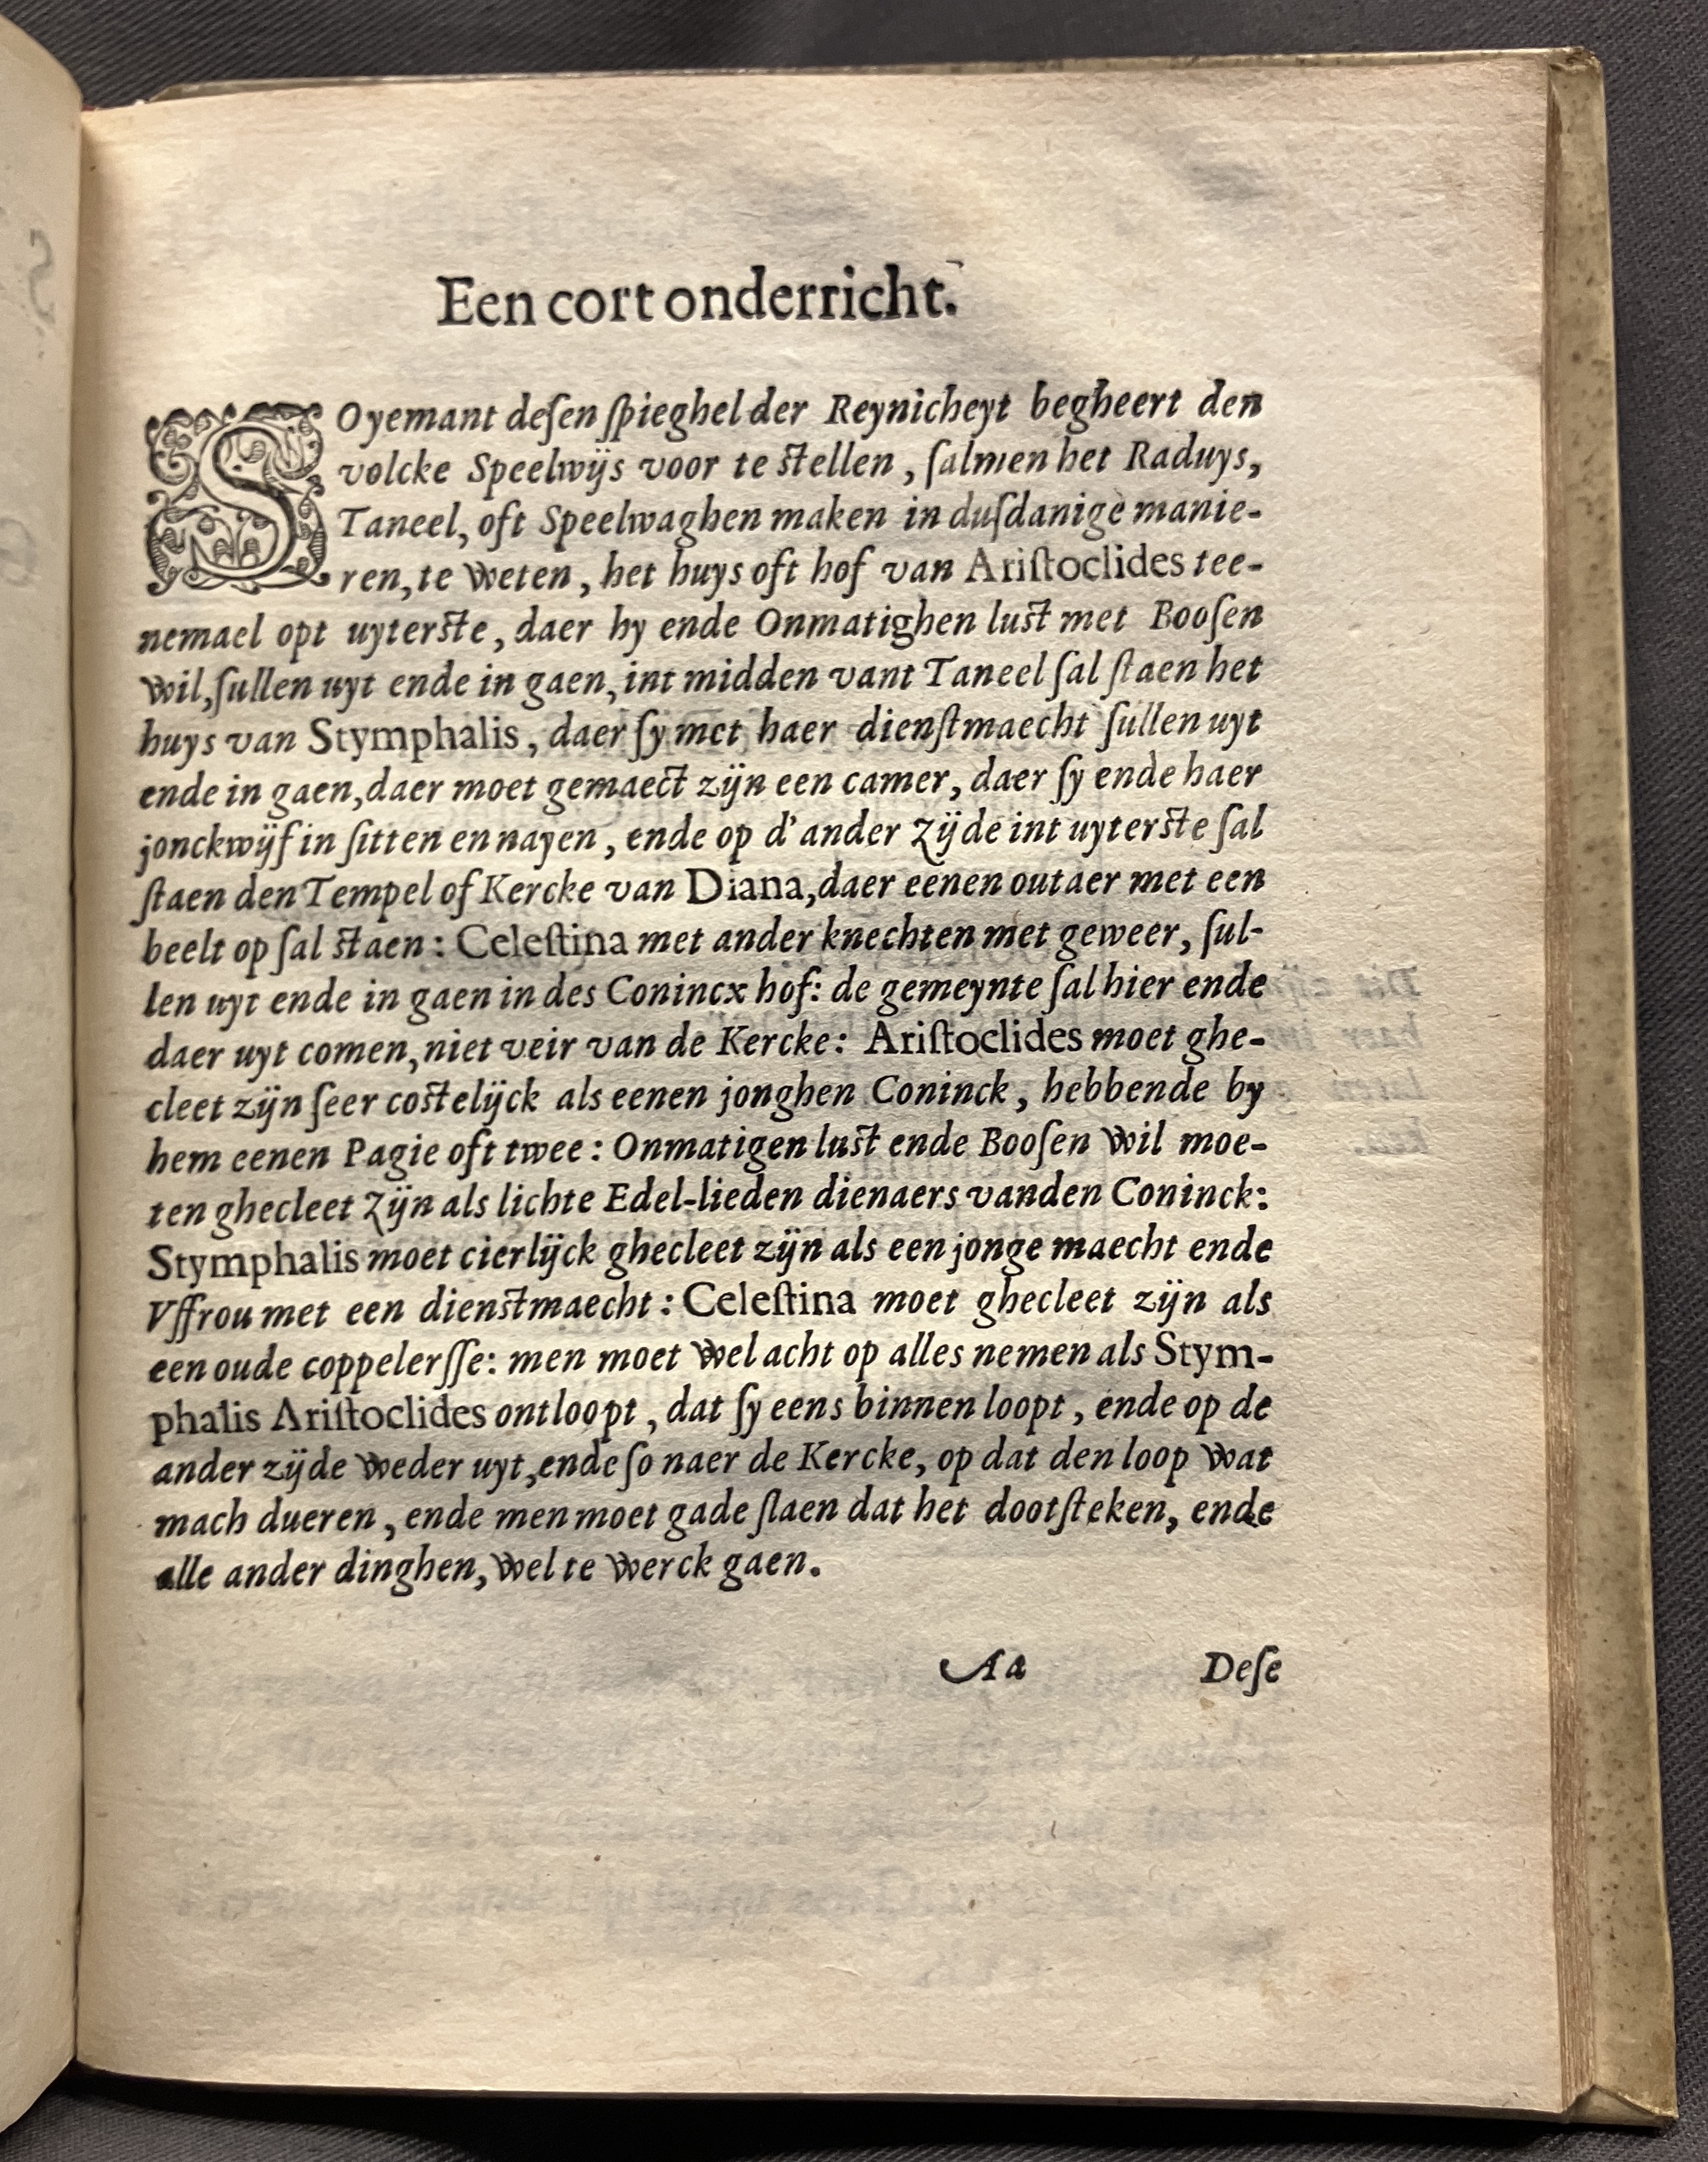 Een cort onderricht.
SOyemant deſen ſpieghel der Reynicheyt begheert den
volcke Speelwijs voor te ſtellen, ſalmen het Raduys,
Taneel, oft Speelwaghen maken in duſdanige manie-
ren, te weten, het huys oft hof van Ariſtoclides tee-
nemael opt uyterſte, daer hy ende Onmatighen luſt met Booſen
wil, ſullen uyt ende in gaen, int midden vant Taneel ſal ſtaen het
huys van Stymphalis, daer ſy met haer dienſtmaecht ſullen uyt
ende in gaen, daer moet gemaect zijn een camer, daer ſy ende haer
jonckwijf in ſitten en nayen, ende op d'ander zijde int uyterſte ſal
ſtaen den Tempel of Kercke van Diana, daer eenen outaer met een
beelt op ſal ſtaen: Celeſtina met ander knechten met geweer, ſul-
len uyt ende in gaen in des Conincx hof: de gemeynte ſal hier ende
daer uyt comen, niet veir van de Kercke: Ariſtoclides moet ghe-
cleet zijn ſeer coſtelijck als eenen jonghen Coninck, hebbende by
hem eenen Pagie oft twee: Onmatigen luſt ende Booſen wil moe-
ten ghecleet zijn als lichte Edel-lieden dienaers vanden Coninck:
Stymphalis moet cierlijck ghecleet zijn als een jonge maecht ende
Vffrou met een dienſtmaecht: Celeſtina moet ghecleet zijn als
een oude coppelerſſe: men moet wel acht op alles nemen als Stym-
phalis Ariſtoclides ontloopt, dat ſy eens binnen loopt, ende op de
ander zijde weder uyt, ende ſo naer de Kercke, op dat den loop wat
mach dueren, ende men moet gade ſlaen dat het dootſteken, ende
alle ander dinghen, wel te werck gaen.
Aa Deſe